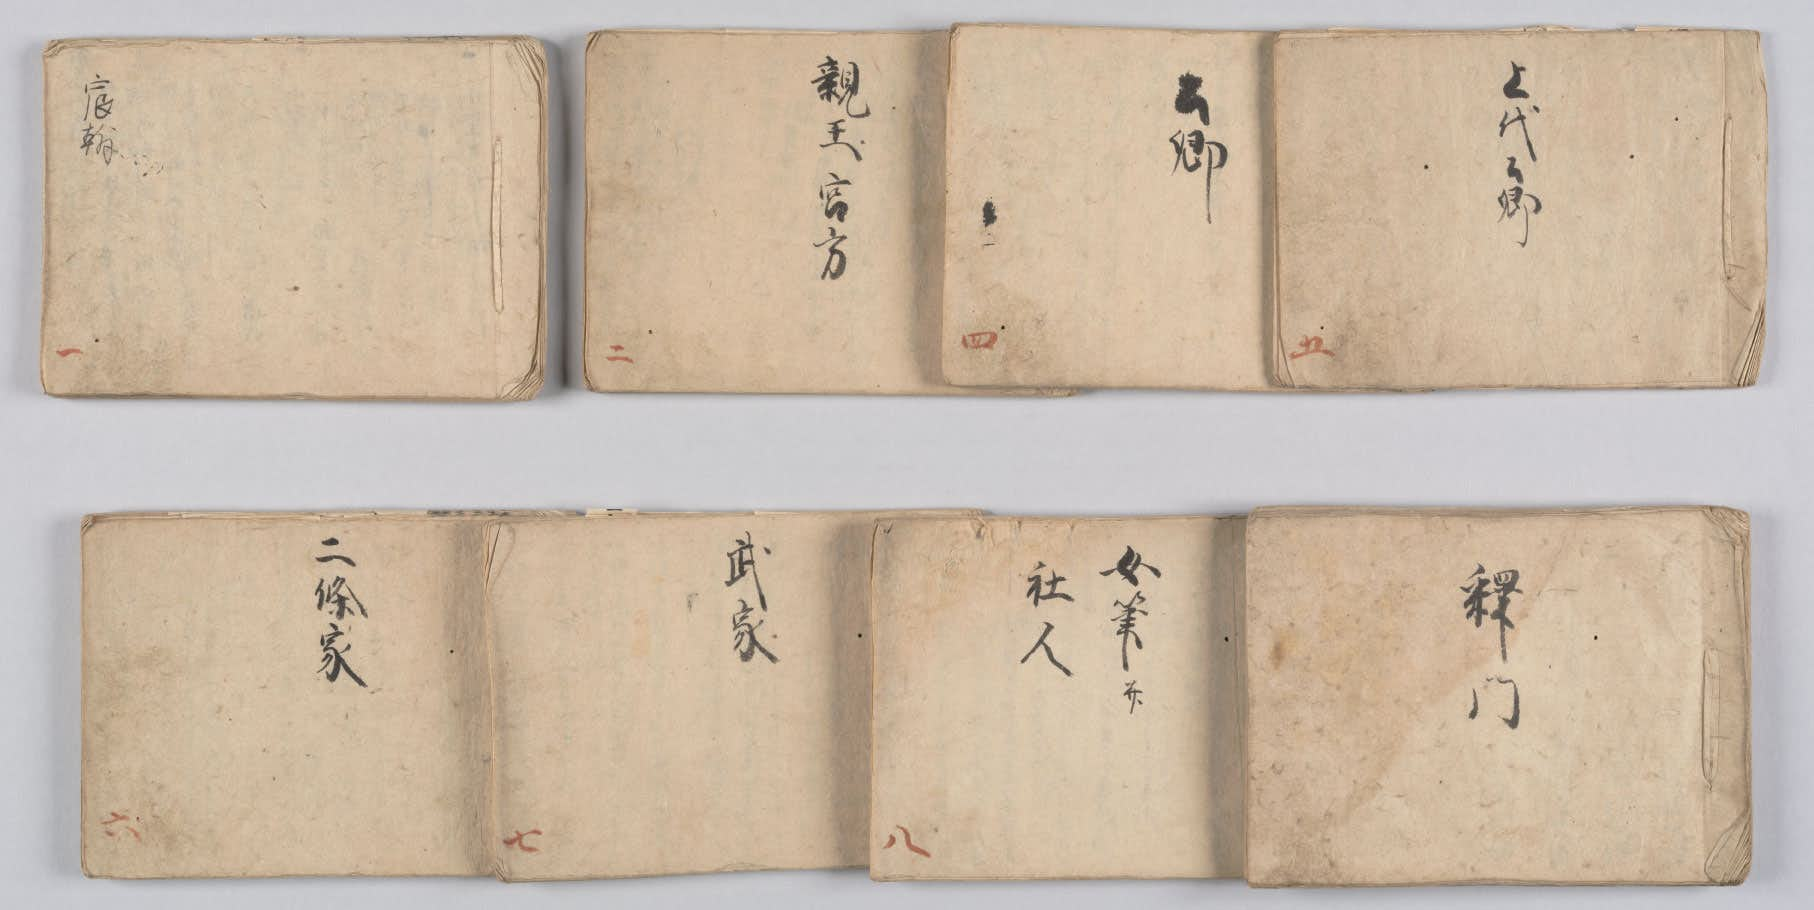 宸翰
一
親王宮方
二
公卿
四
上代公卿
五
二條家
六
武家
七
女筆并
社人
八
釋門